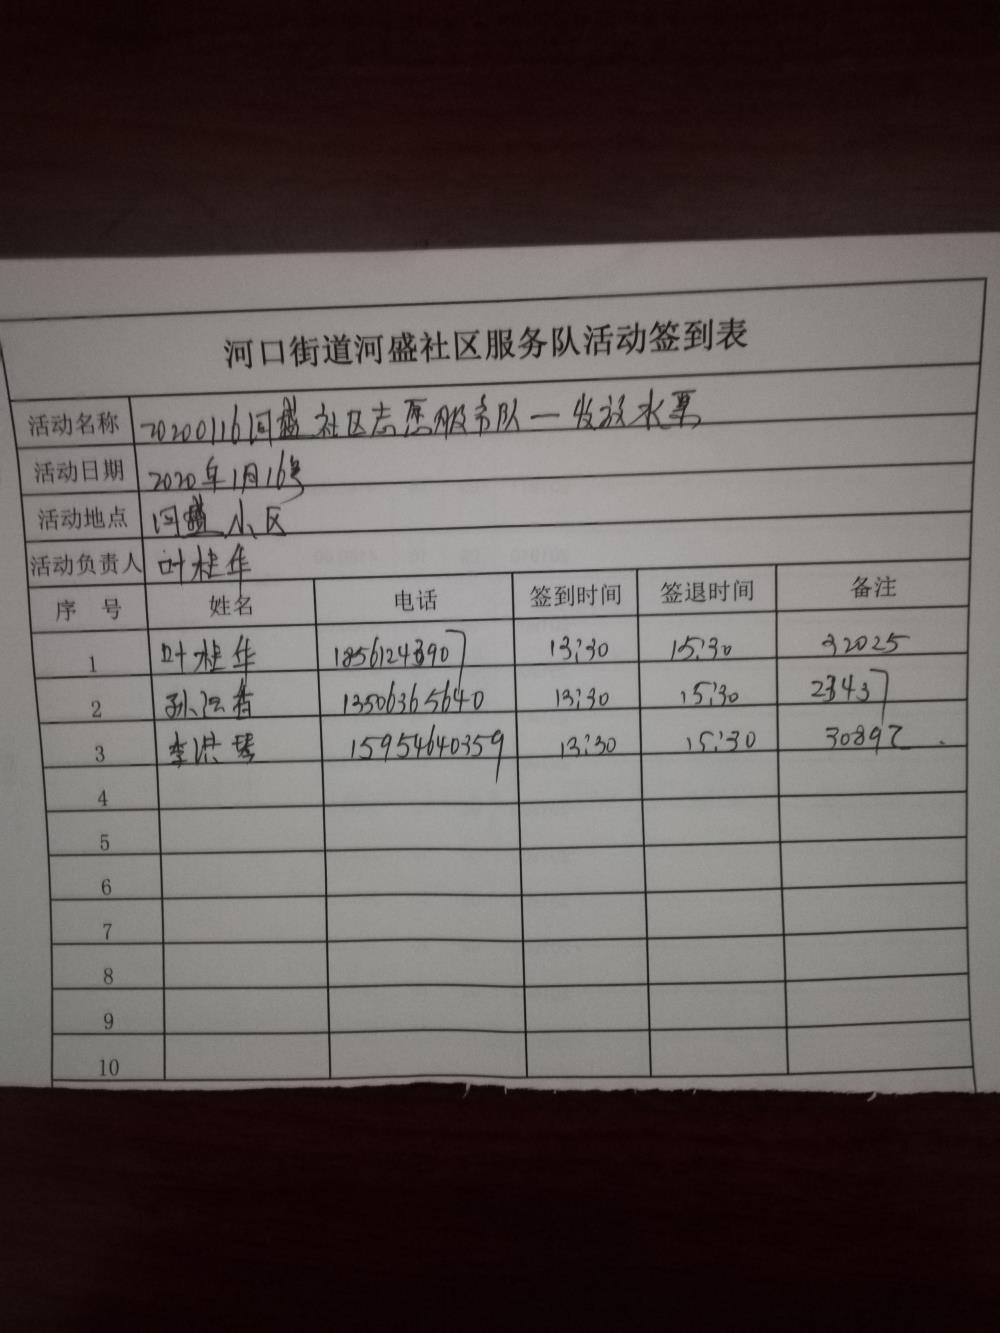 河口街道河盛社区服务队活动签到表
活动名称 20200116河盛社区志愿服务队一发放水票
活动日期 2020年1月16号
活动地点 河盛小区
活动负责人 叶桂华
序 号 姓名 电话 签到时间 签退时间 备注
1 叶桂华 18561243907 13:30 15:30 32025
2 孙洪香 13506365640 13:30 15:30 23437
3 李洪琴 15954640359 13:30 15:30 30892
4
5
6
7
8
9
10